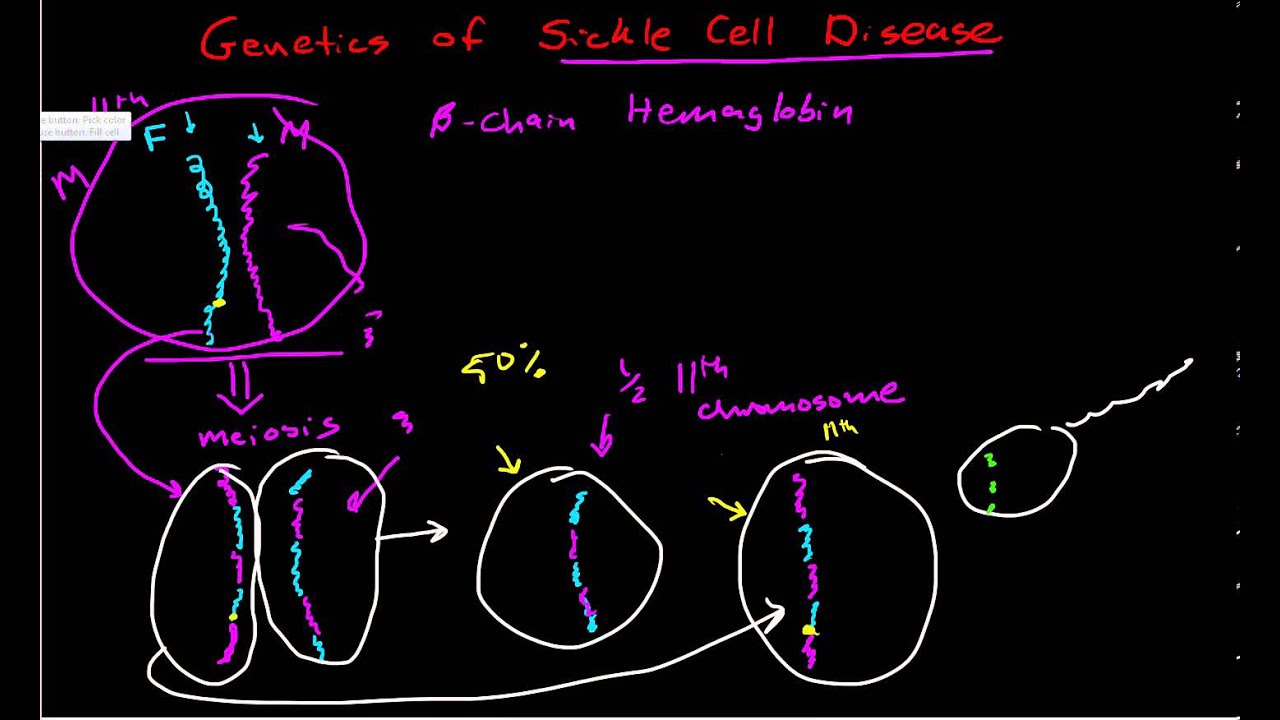 Genetics of Sickle Cell Disease
11th
β-chain Hemaglobin
e button: Pick color
use button: Fill cell
F
M
M
50%
1/2 11th
chromosome
meiosis
11th